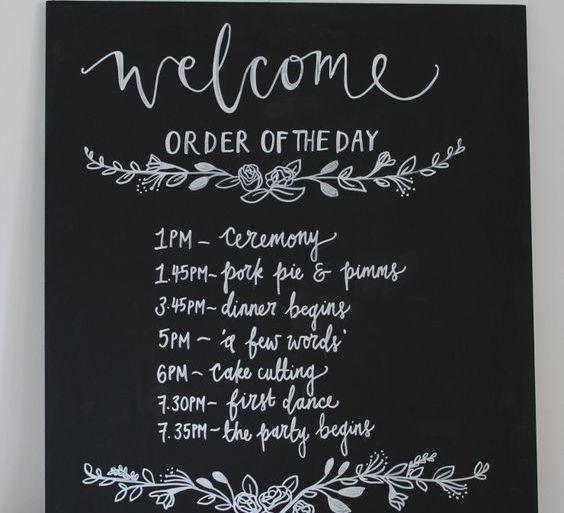 welcome
ORDER OF THE DAY
1PM ~ ceremony
1.45PM~ pork pie & pimms
3.45PM~ dinner begins
5PM ~ 'a few words'
6PM ~ cake cutting
7.30PM~ first dance
7.35PM~ the party begins